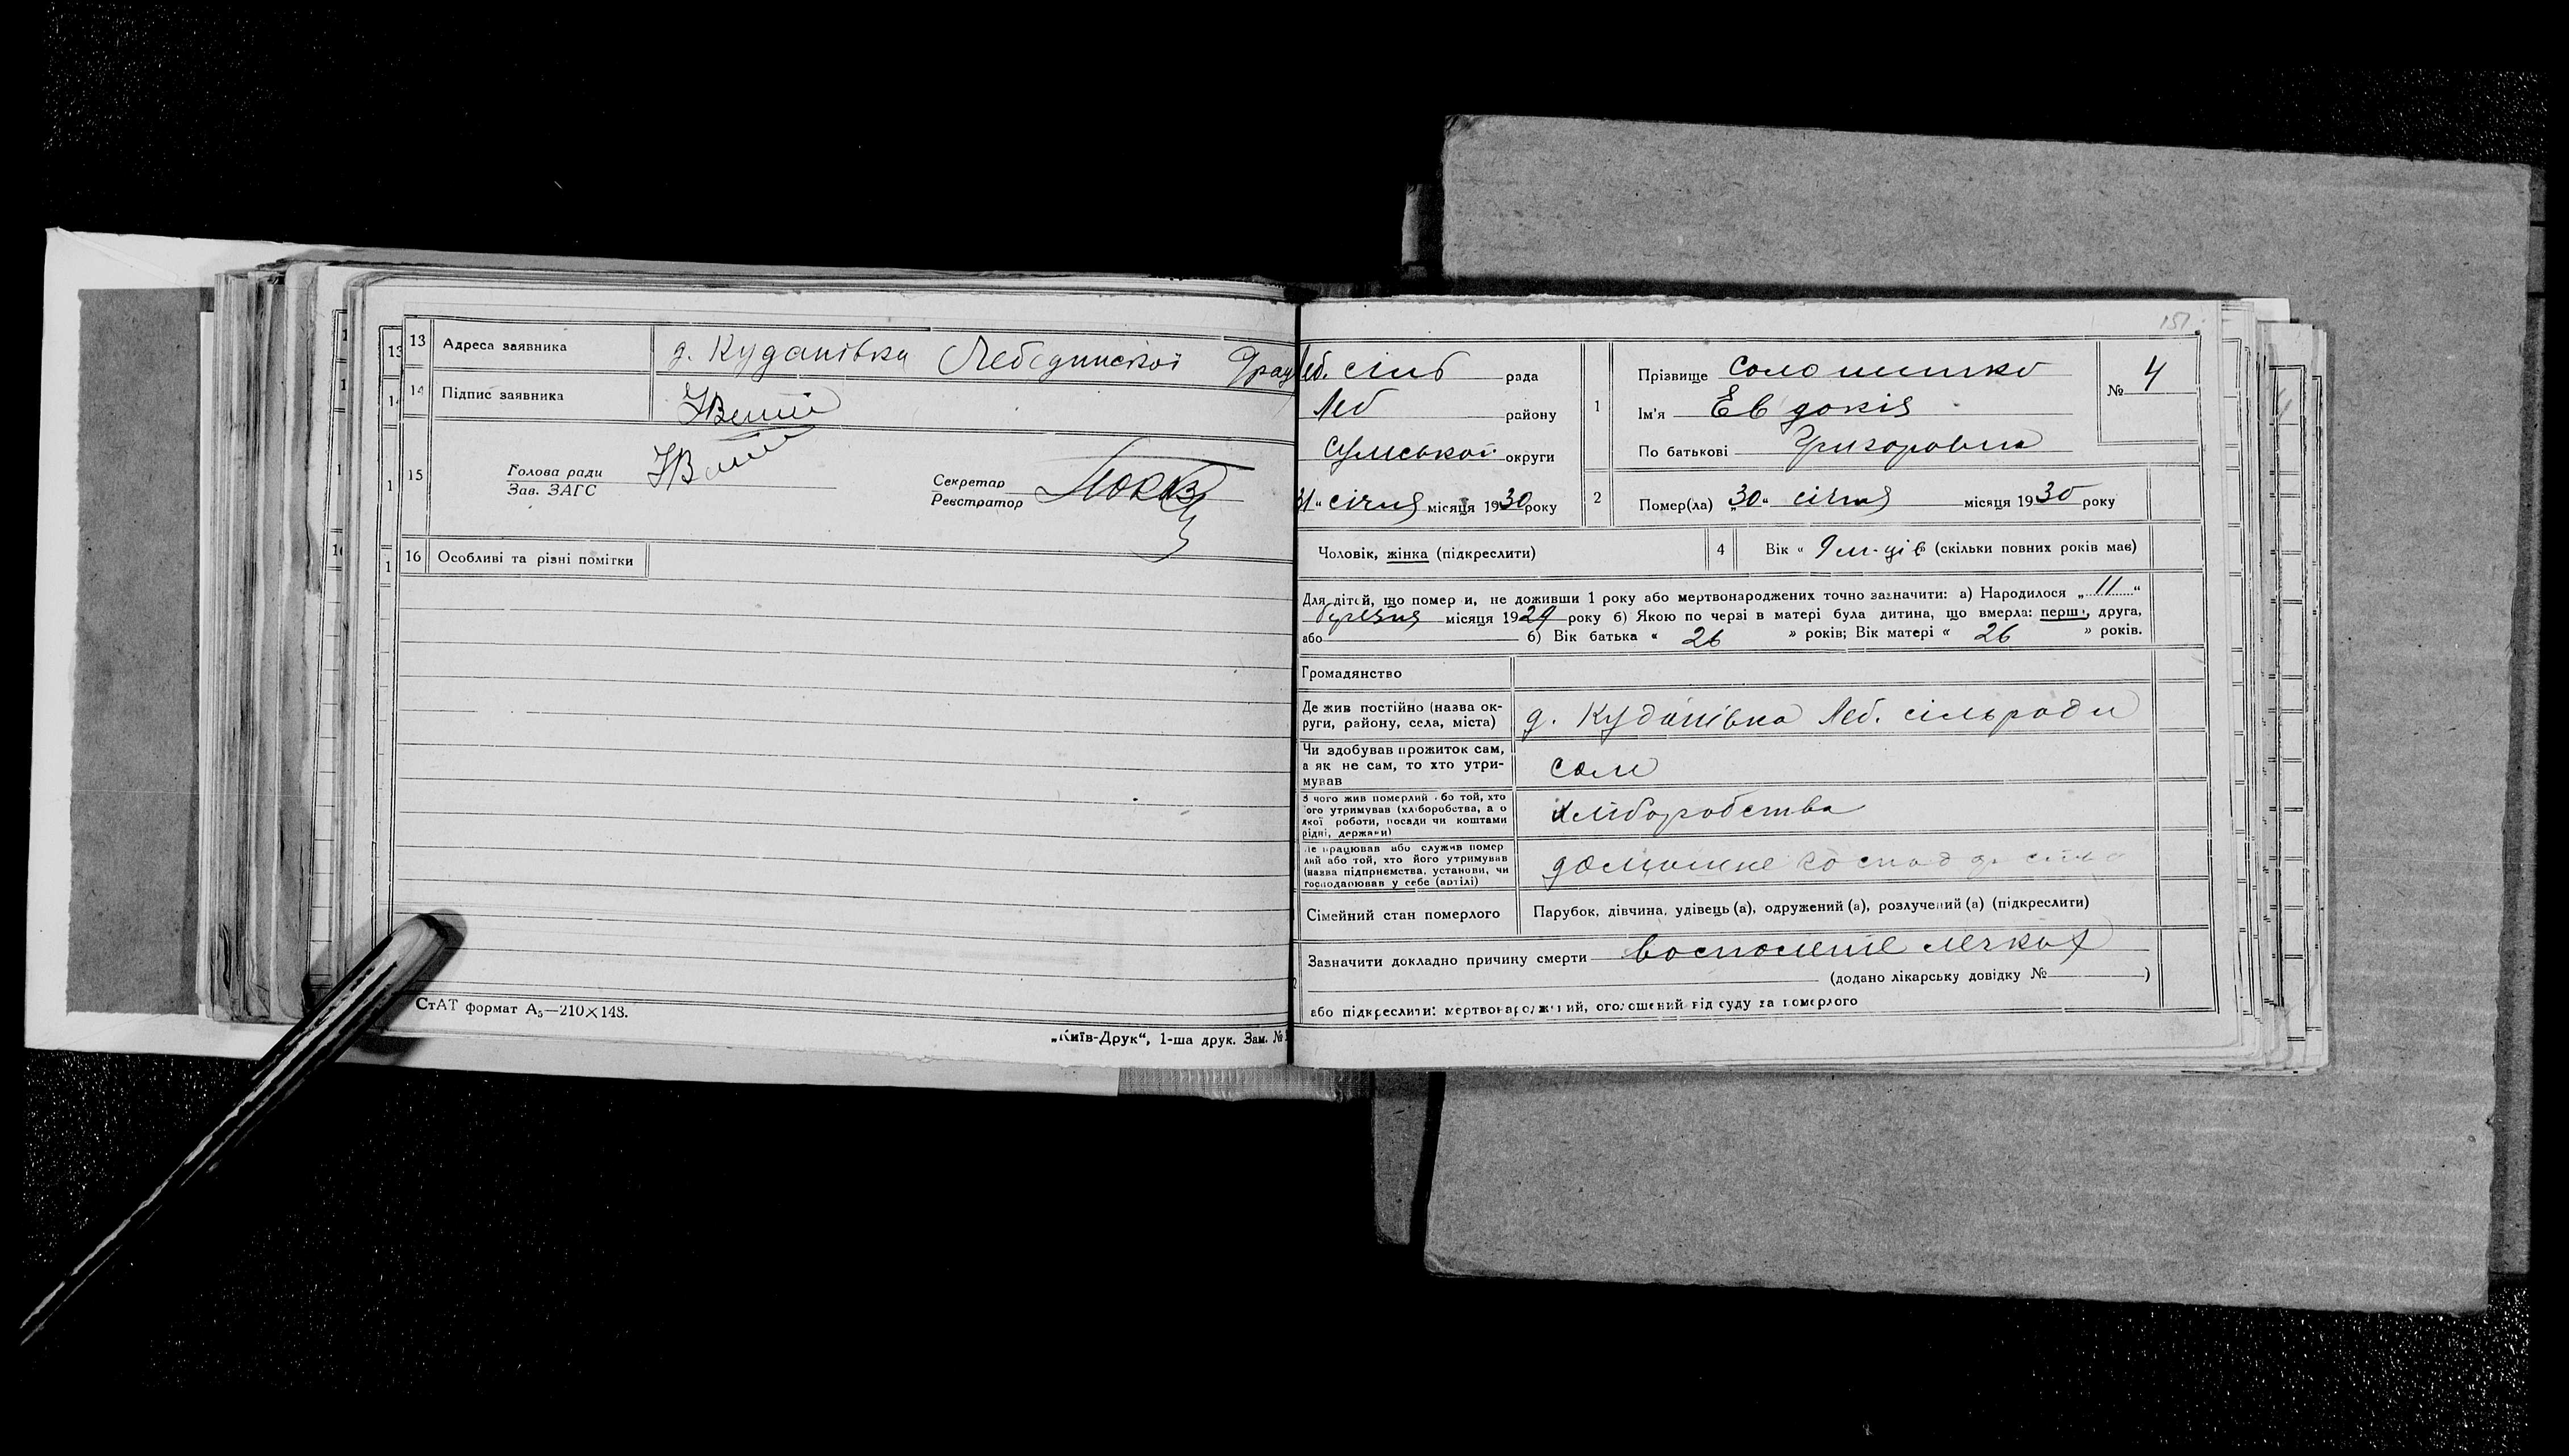 13 Адреса заявника д. Куданівка Лебединської
14 Підпис заявника
15 Голова ради
Зав. ЗАГС
Секретар
Реєстратор
16 Особливі та різні помітки
СтАТ формат А₅—210×148.
„Київ-Друк“, 1-ша друк. Зам. №
151
Леб. сільб рада
Леб району
Сумської округи
31 “ січня місяця 1930 року
1 Прізвище Соломшшко
Ім'я Евдокія
По батькові Григоровна
№ 4
2 Помер(ла) „30“ січня місяця 1930 року
Чоловік, жінка (підкреслити)
4 Вік « 9 м-ців (скільки повних років має)
Для дітей, що помер и, не доживши 1 року або мертвонароджених точно зазначити: а) Народилося „11“
березня місяця 1929 року б) Якою по черзі в матері була дитина, що вмерла: перш, друга,
або б) Вік батька « 26 » років; Вік матері « 26 » років.
Громадянство
Де жив постійно (назва ок-
руги, району, села, міста) д. Куданівка Леб. сільради
Чи здобував прожиток сам,
а як не сам, то хто утри-
мував сам
З чого жив померлий або той, хто
його утримував (хліборобства, а о
якої роботи, посади чи коштами
рідні, держави) хліборобства
Де працював або служив помер
лий або той, хто його утримував
(назва підприємства, установи, чи
господарював у себе (артілі) домашнє господарство
Сімейний стан померлого Парубок, дівчина, удівець (а), одружений (а), розлучений (а) (підкреслити)
Зазначити докладно причину смерти воспаленіе легких
(додано лікарську довідку № )
або підкреслити: мертвонароджений, оголошений від суду за померлого